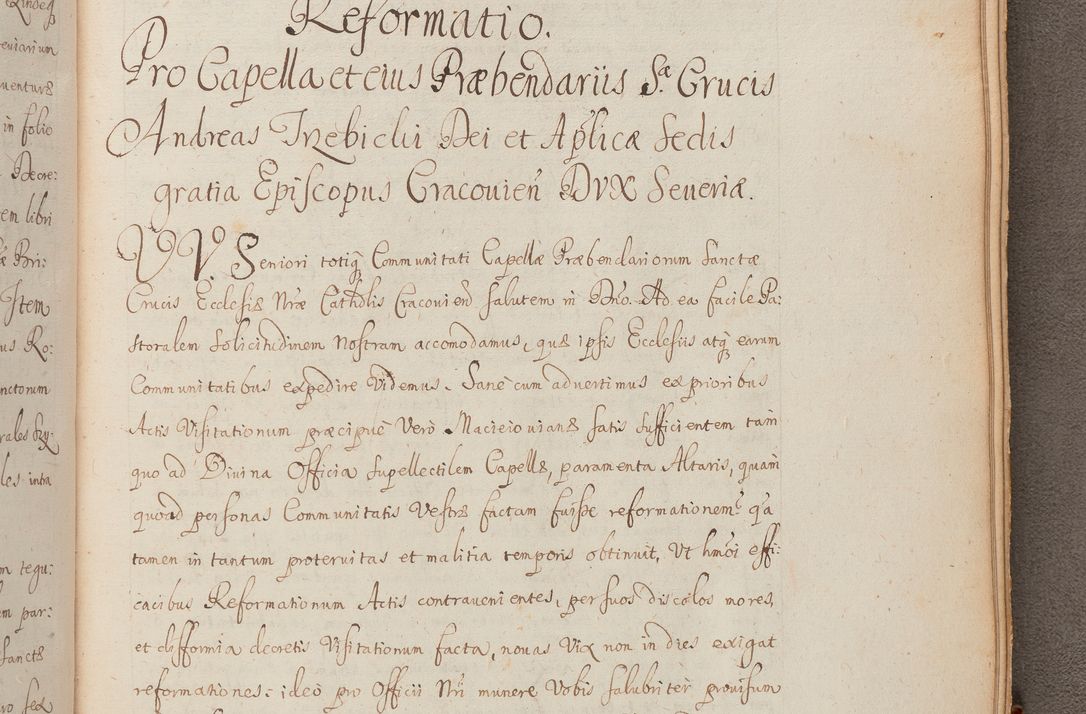 Reformatio.
Pro Capella et eius Præbendariis S.æ Crucis
Andreas Trzebicki Dei et Aplicæ Sedis
gratia Episcopus Cracovien̄ DVX Severiæ.
VV. Seniori totiqꝫ Communitati Capellæ Præbendariorum Sanctæ
Crucis Ecclesiæ Nræ Cathdlis Cracovien̄ Salutem in Dno. Ad ea facile Pa:
storalem Solicitudinem Nostram accomodamus, quæ ipsis Ecclesiis atqꝫ earum
Communitatibus expedire videmus. Sanè cum advertimus ex prioribus
Actis Visitationum præcipuè Verò Macieiovianæ satis sufficientem tam
quo ad Divina Officia Supellectilem Capellæ, paramenta Altaris, quam
quoad personas Communitatis Vestræ factam fuisse reformationem: qa
tamen in tantum protervitas et malitia temporis obtinuit, Vt hmōi effi:
cacibus Reformationum Actis contravenientes, per suos discolos mores,
et difformia decretis Visitationum facta, novas Vix non in dies exigat
reformationes: ideò pro Officii Nri munere Vobis salubriter provisum
Qindeq
eviarium
in folio
Decre:
em libri
æ Bri:
Item
us Ro:
nctorum
les inta
m tegu:
m par:
Sanctæ